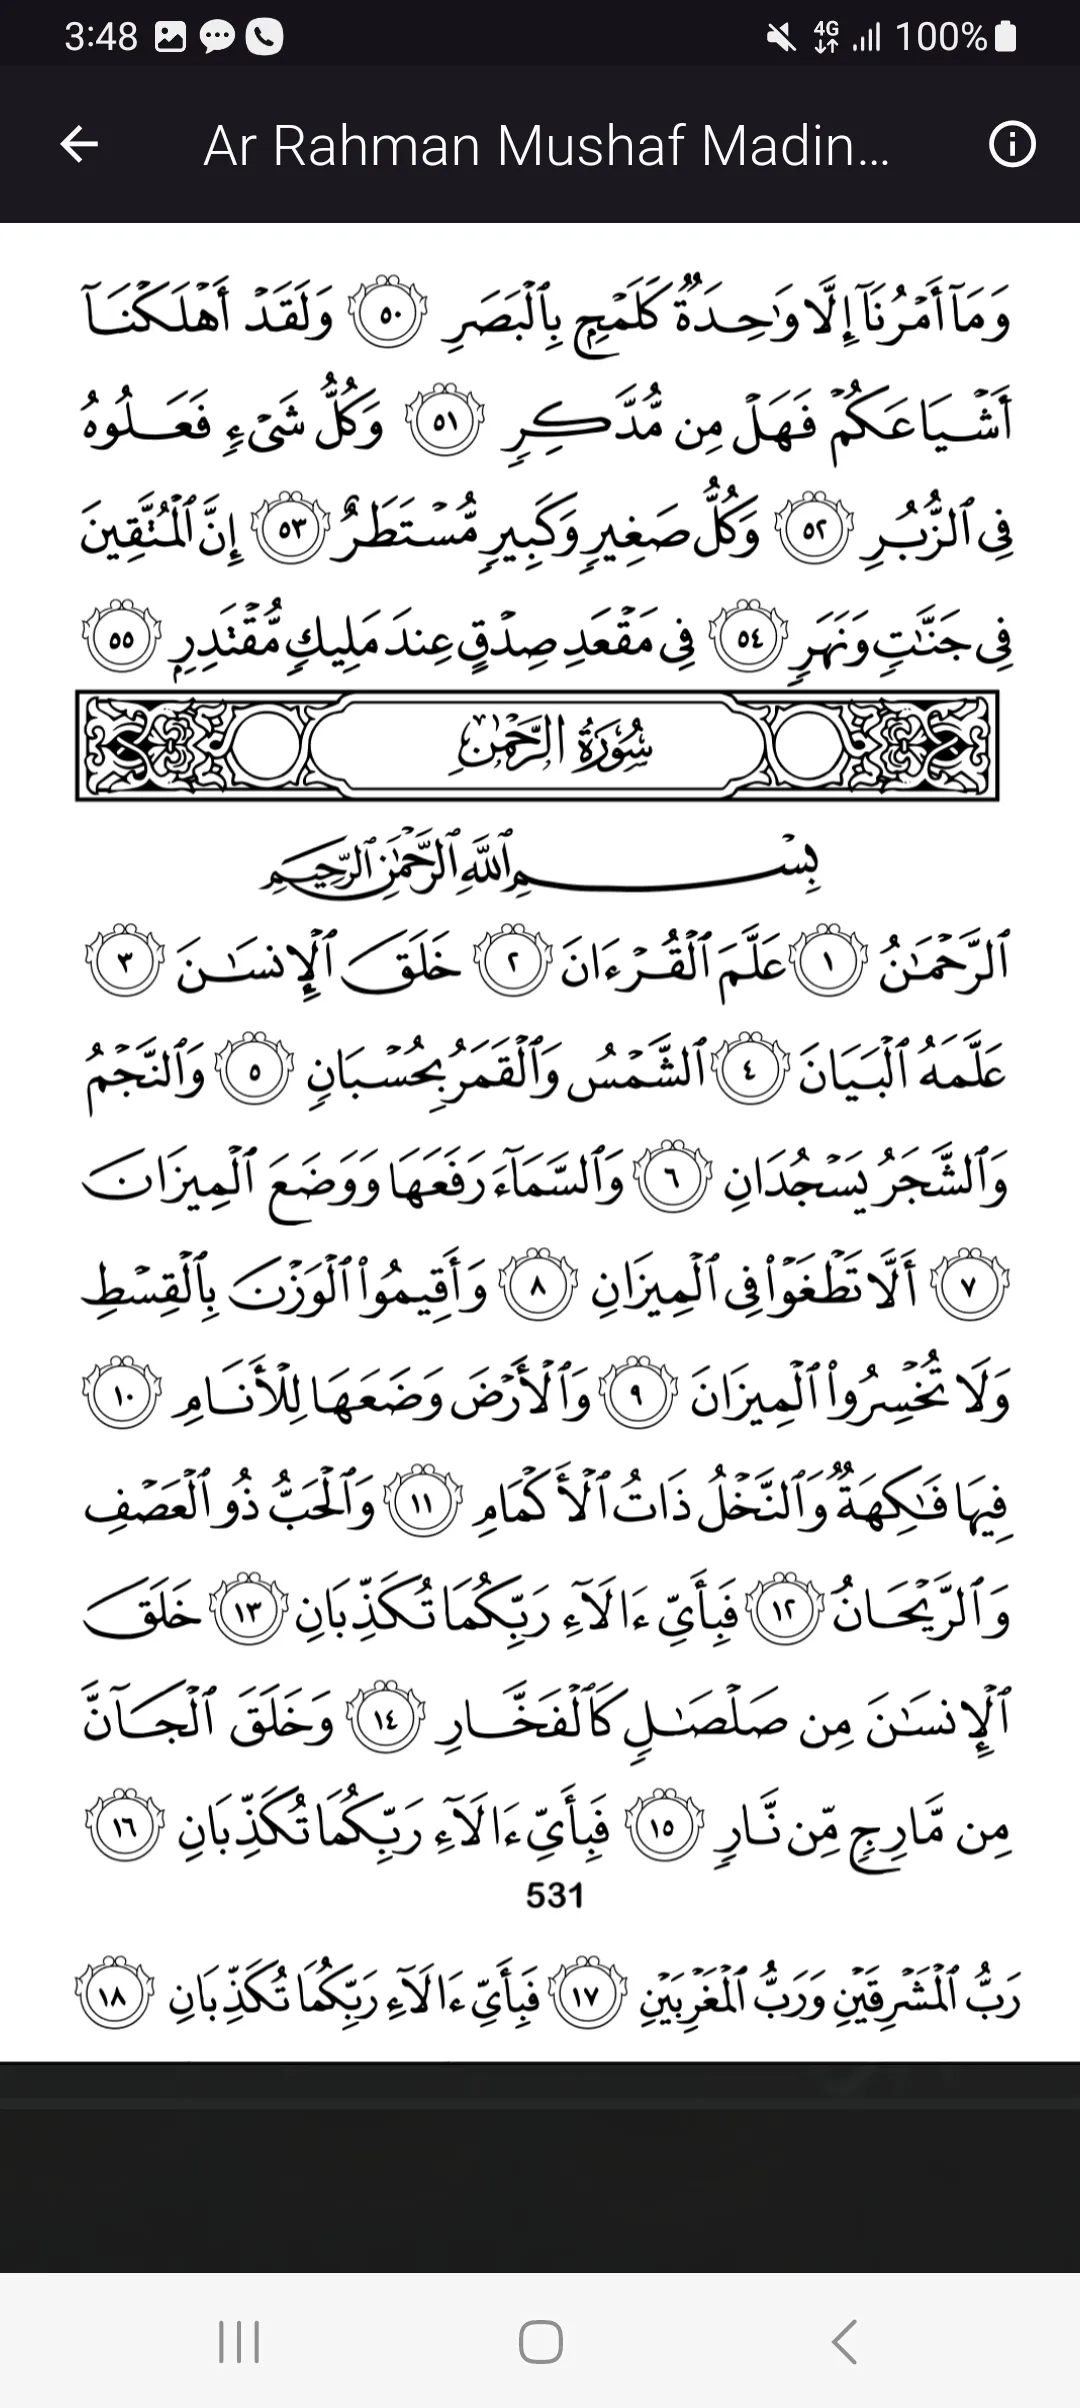 3:48 4G 100%
Ar Rahman Mushaf Madin...
وَمَآ أَمْرُنَآ إِلَّا وَٰحِدَةٌ كَلَمْحٍۭ بِٱلْبَصَرِ ٥٠ وَلَقَدْ أَهْلَكْنَآ
أَشْيَاعَكُمْ فَهَلْ مِن مُّدَّكِرٍ ٥١ وَكُلُّ شَىْءٍ فَعَلُوهُ
فِى ٱلزُّبُرِ ٥٢ وَكُلُّ صَغِيرٍ وَكَبِيرٍ مُّسْتَطَرٌ ٥٣ إِنَّ ٱلْمُتَّقِينَ
فِى جَنَّٰتٍ وَنَهَرٍ ٥٤ فِى مَقْعَدِ صِدْقٍ عِندَ مَلِيكٍ مُّقْتَدِرٍۭ ٥٥
سُورَةُ الرَّحْمَٰنِ
بِسْمِ ٱللَّهِ ٱلرَّحْمَٰنِ ٱلرَّحِيمِ
ٱلرَّحْمَٰنُ ١ عَلَّمَ ٱلْقُرْءَانَ ٢ خَلَقَ ٱلْإِنسَٰنَ ٣
عَلَّمَهُ ٱلْبَيَانَ ٤ ٱلشَّمْسُ وَٱلْقَمَرُ بِحُسْبَانٍ ٥ وَٱلنَّجْمُ
وَٱلشَّجَرُ يَسْجُدَانِ ٦ وَٱلسَّمَآءَ رَفَعَهَا وَوَضَعَ ٱلْمِيزَانَ
٧ أَلَّا تَطْغَوْا۟ فِى ٱلْمِيزَانِ ٨ وَأَقِيمُوا۟ ٱلْوَزْنَ بِٱلْقِسْطِ
وَلَا تُخْسِرُوا۟ ٱلْمِيزَانَ ٩ وَٱلْأَرْضَ وَضَعَهَا لِلْأَنَامِ ١٠
فِيهَا فَٰكِهَةٌ وَٱلنَّخْلُ ذَاتُ ٱلْأَكْمَامِ ١١ وَٱلْحَبُّ ذُو ٱلْعَصْفِ
وَٱلرَّيْحَانُ ١٢ فَبِأَىِّ ءَالَآءِ رَبِّكُمَا تُكَذِّبَانِ ١٣ خَلَقَ
ٱلْإِنسَٰنَ مِن صَلْصَٰلٍ كَٱلْفَخَّارِ ١٤ وَخَلَقَ ٱلْجَآنَّ
مِن مَّارِجٍ مِّن نَّارٍ ١٥ فَبِأَىِّ ءَالَآءِ رَبِّكُمَا تُكَذِّبَانِ ١٦
531
رَبُّ ٱلْمَشْرِقَيْنِ وَرَبُّ ٱلْمَغْرِبَيْنِ ١٧ فَبِأَىِّ ءَالَآءِ رَبِّكُمَا تُكَذِّبَانِ ١٨